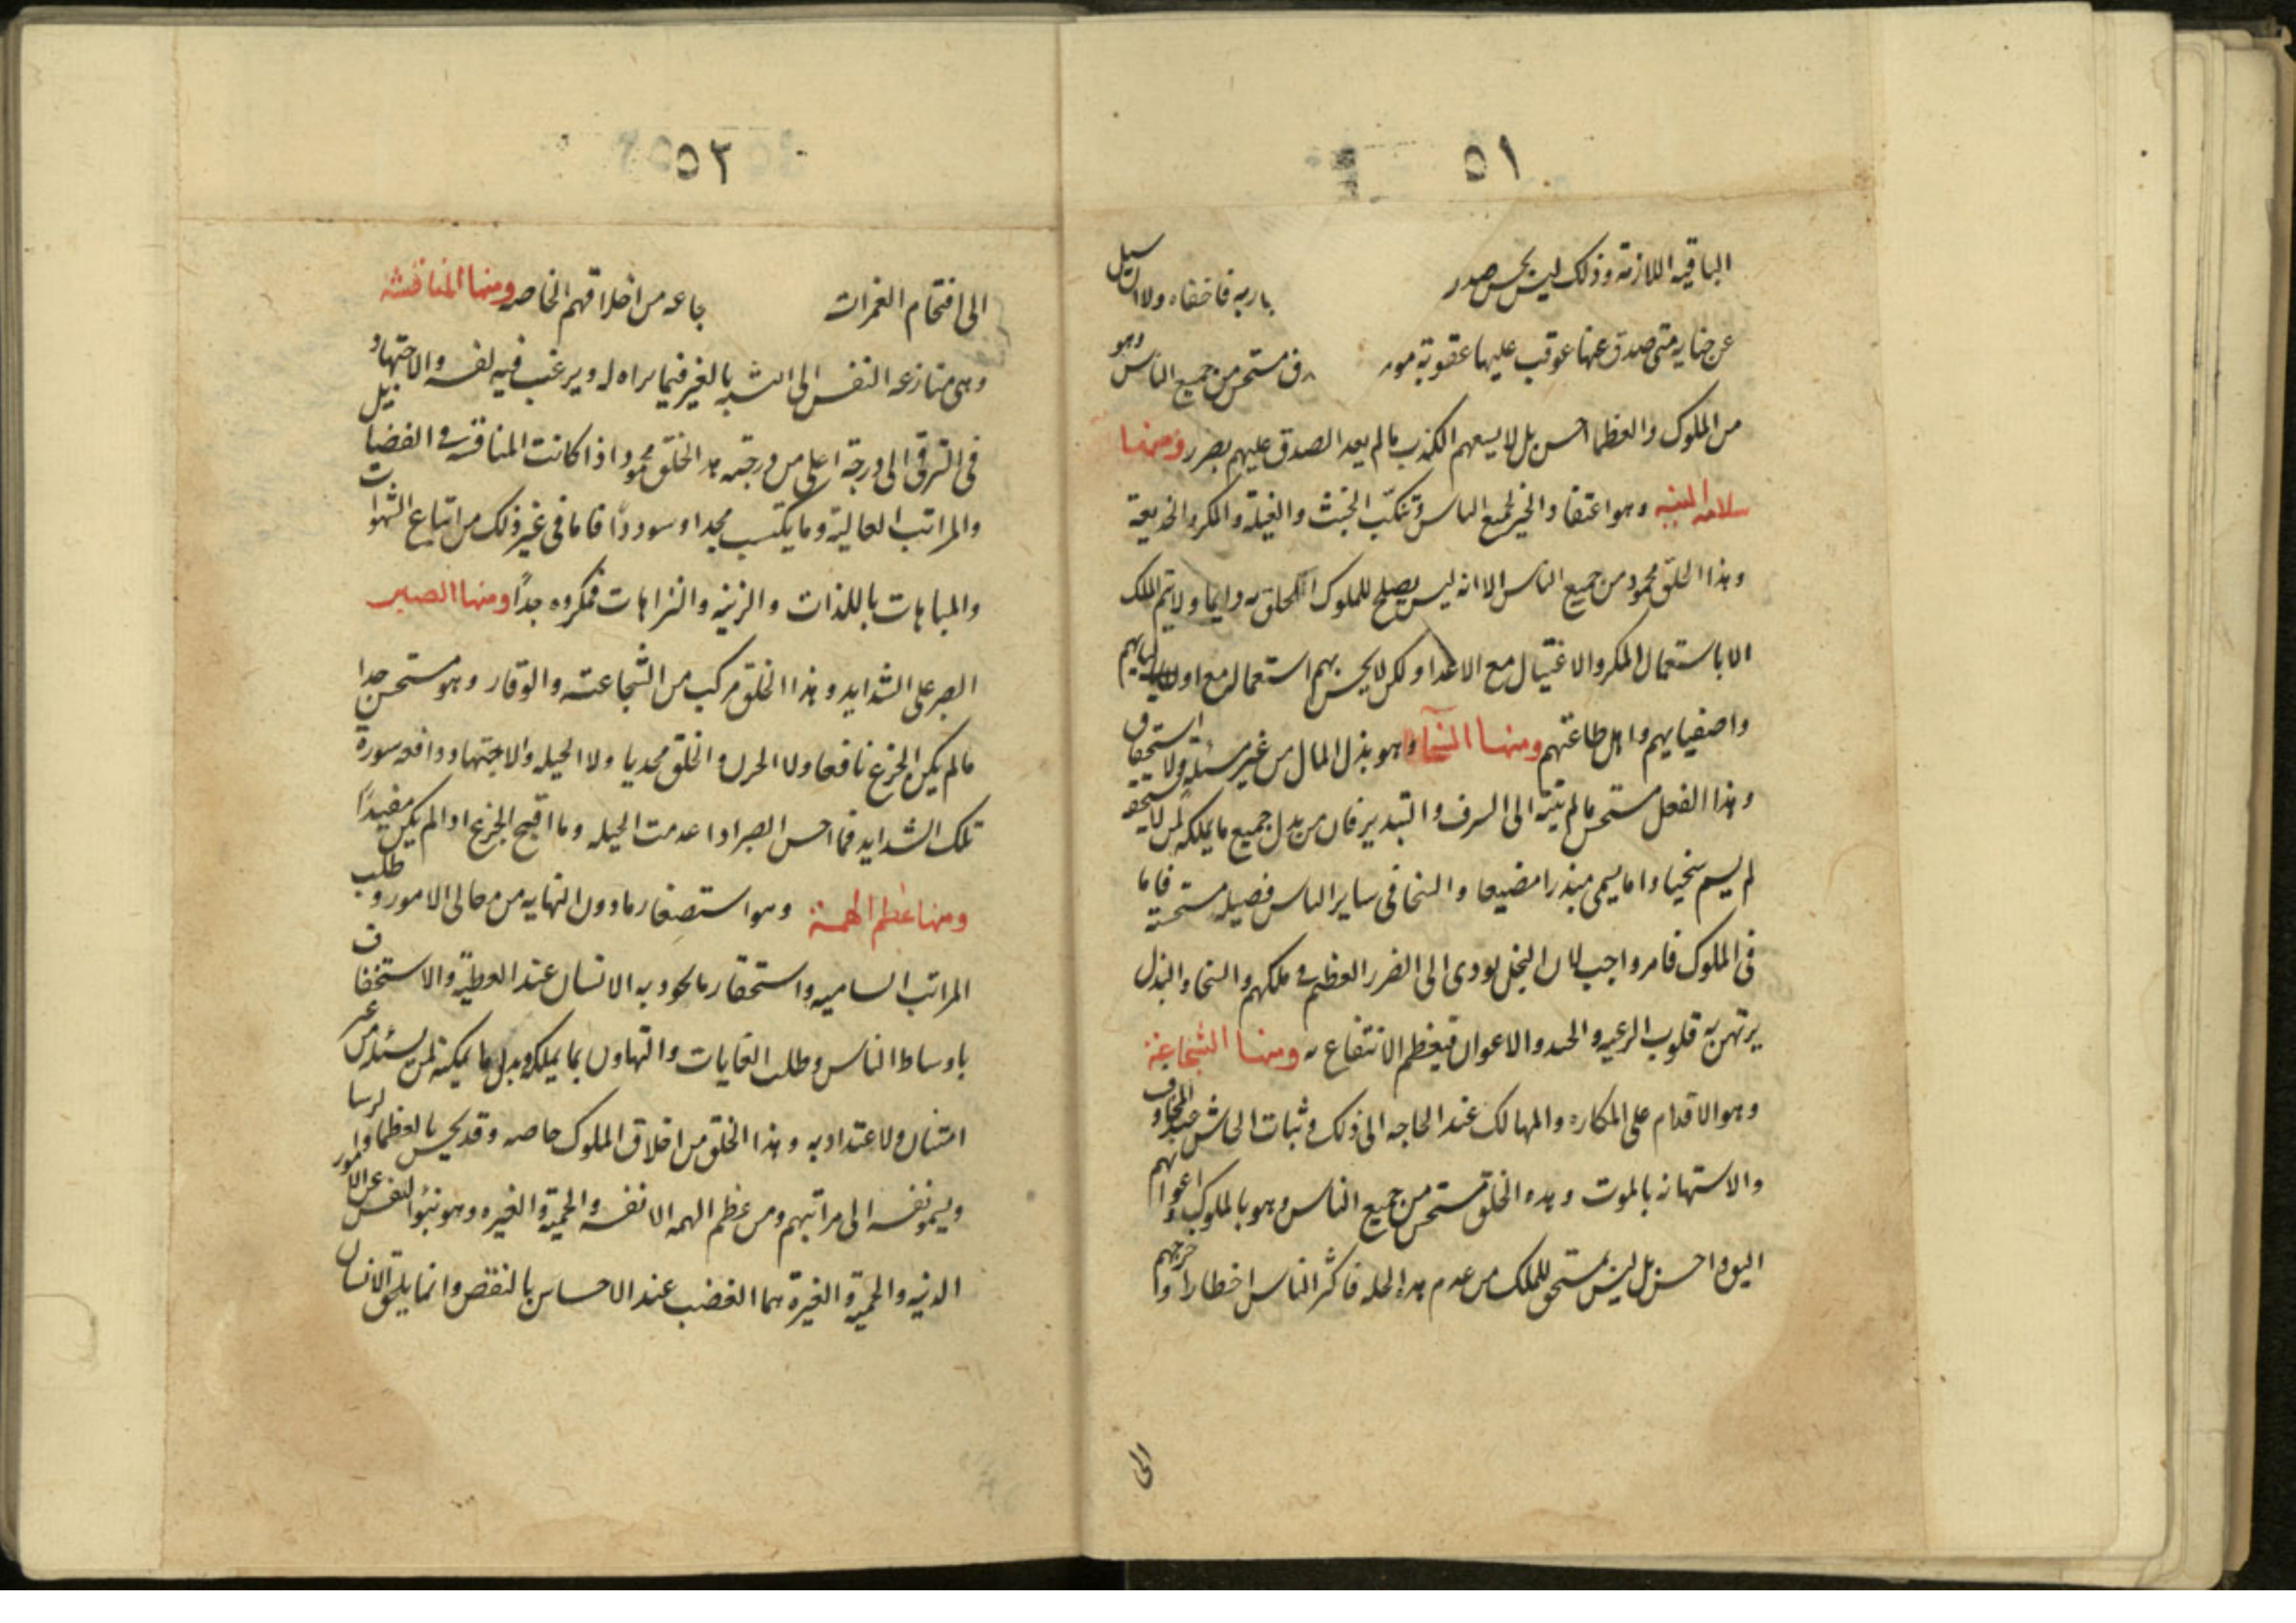 ٥١
الباقيه اللازمة وذلك ليس يحسن صدر باربه فاخفاه ولا ان سيل
عن جنايه متى صدق عنها عوقب عليها عقوبة مو ق مستحسن من جميع الناس وهو
من الملوك والعظما احسن بل لا يسعهم الكذب مالم يعد الصدق عليهم بضرر ومنها
سلامه النيه وهو اعتقاد الخير لجميع الناس وتنكب الخبث والغيلة والمكر والخديعة
وهذا الخلق محمود من جميع الناس الا انه ليس يصلح للملوك التخلق به دايما ولا يتم الملك
الا باستعمال المكر والاغتيال مع الاعدا ولكن لا يحسن بهم استعماله مع اوليايهم
واصفيايهم واهل طاعتهم ومنها السخآء وهو بذل المال من غير مسئلة ولا استحقاق
وهذا الفعل مستحسن مالم ينته الى السرف والتبذير فان من بذل جميع ما يملكه لمن لا يستحقه
لم يسم سخيا وانما يسمى مبذرا مضيعا والسخا فى ساير الناس فضيله مستحسنة فاما
فى الملوك فامر واجب لان البخل يودى الى الضرر العظيم فى ملكهم والسخا والبذل
يرتهن به قلوب الرعيه والجند والاعوان فيعظم الانتفاع به ومنها الشجاعة
وهو الاقدام على المكاره والمهالك عند الحاجه الى ذلك وثبات الجاش عند المخاوف
والاستهانه بالموت وهذه الخلق مستحسن من جميع الناس وهو بالملوك واعوانهم
اليق واحسن بل ليس بمستحق للملك من عدم هذه الخله فاكثر الناس اخطارا واحوجهم
الى
٥٢
الى اقتحام الغمرات جاعه من اخلاقهم الخاصه ومنها المنافسة
وهى منازعه النفس الى التشبه بالغير فيما يراه له ويرغب فيه لنفسه والاجتهاد
فى الترقى الى درجة اعلى من درجته هذا الخلق محمود اذا كانت المنافسة فى الفضايل
والمراتب العالية وما يكتسب مجدا وسوددًا فاما فى غير ذلك من اتباع الشهوات
والمباهات باللذات والزينه والنزاهات فمكروه جدًا ومنها الصبر
الصبر على الشدايد وهذا الخلق مركب من الشجاعة والوقار وهو مستحسن جدا
مالم يكن الجزع نافعا ولا الحزن والخلق مجديا ولا الحيله والاجتهاد دافعه سورة
تلك الشدايد فما احسن الصبر اذا عدمت الحيله وما اقبح الجزع اذا لم يكن مفيدًا
ومنها عظم الهمة وهو استصغار مادون النهايه من معالى الامور وطلب
المراتب الساميه واستحقار ما يجود به الانسان عند العطية والاستخفاف
باوساط الناس وطلب الغايات والتهاون بما يملكه وبذل ما يمكنه لمن يسئله من غير
امتنان ولا اعتداد به وهذا الخلق من اخلاق الملوك خاصه وقد يحسن بالعظما والروسا
ويسمو نفسه الى مراتبهم ومن عظم الهمه الانفه والحمية والغيره وهو نبؤ النفس عن الامور
الدنيه والحمية والغيرة هما الغضب عند الاحساس بالنقص وانما يلحق الانسان